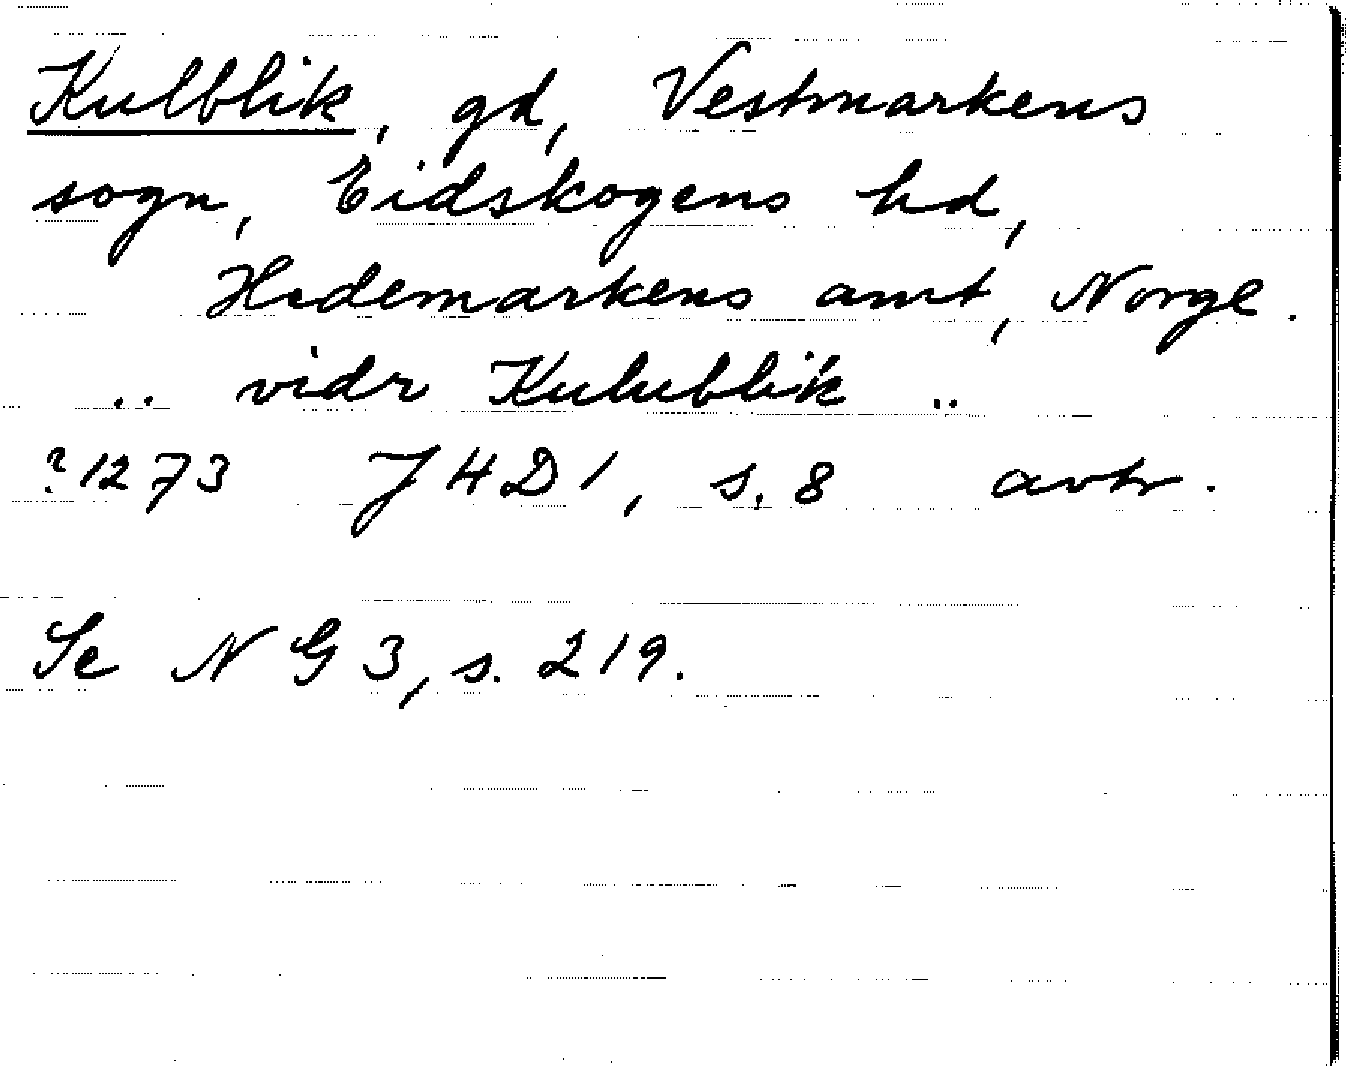 Kulblik, gd, Vestmarkens
sogn, Eidskogens hd,
Hedemarkens amt, Norge.
.. vidr Kulublik ..
?1273 J4D1, s. 8 avtr.
Se NG3, s. 219.